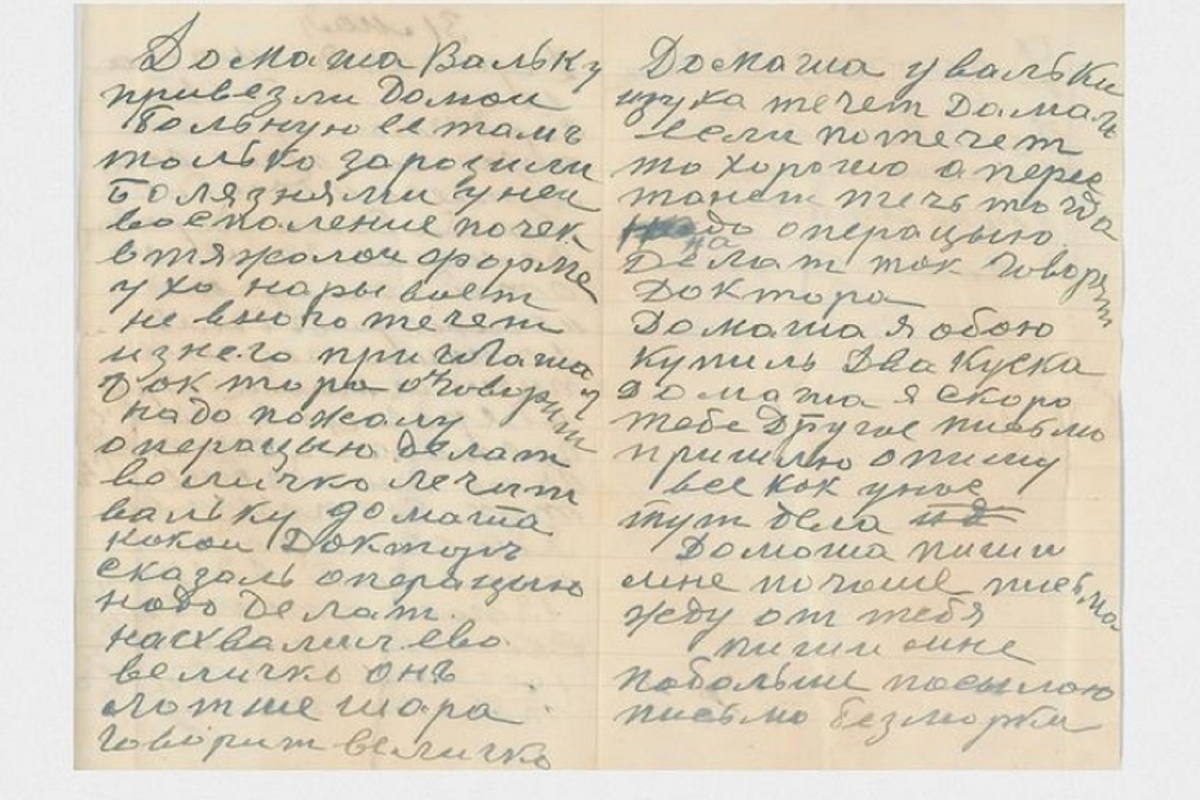 Домаша Вальку
привезли домои
больную ее тамъ
только заразили
болязнями унеи
воспаление почек
втяжолои форме
ухо нарывает
не вного течет
изнего приглаша
доктора говорит
надо пожалу
операцыю делат
величко лечит
вальку домаша
какои Докторъ
сказалъ операцыю
надо делат
нахвалил ево
величко онъ
лотше шара
говорит величко
Домаша увальки
уха течет Домаш
если потечет
то хорошо а пере
танет течь тогда
надо операцыю
на
делат так говорят
доктора
Домаша я обою
купилъ два куска
домаша я скоро
тебе другое письмо
пришлю опишу
все как унас
тут дела
Домаша пиши
мне почаше письма
жду от тебя
пиши мне
побольши посылаю
письмо безмарки